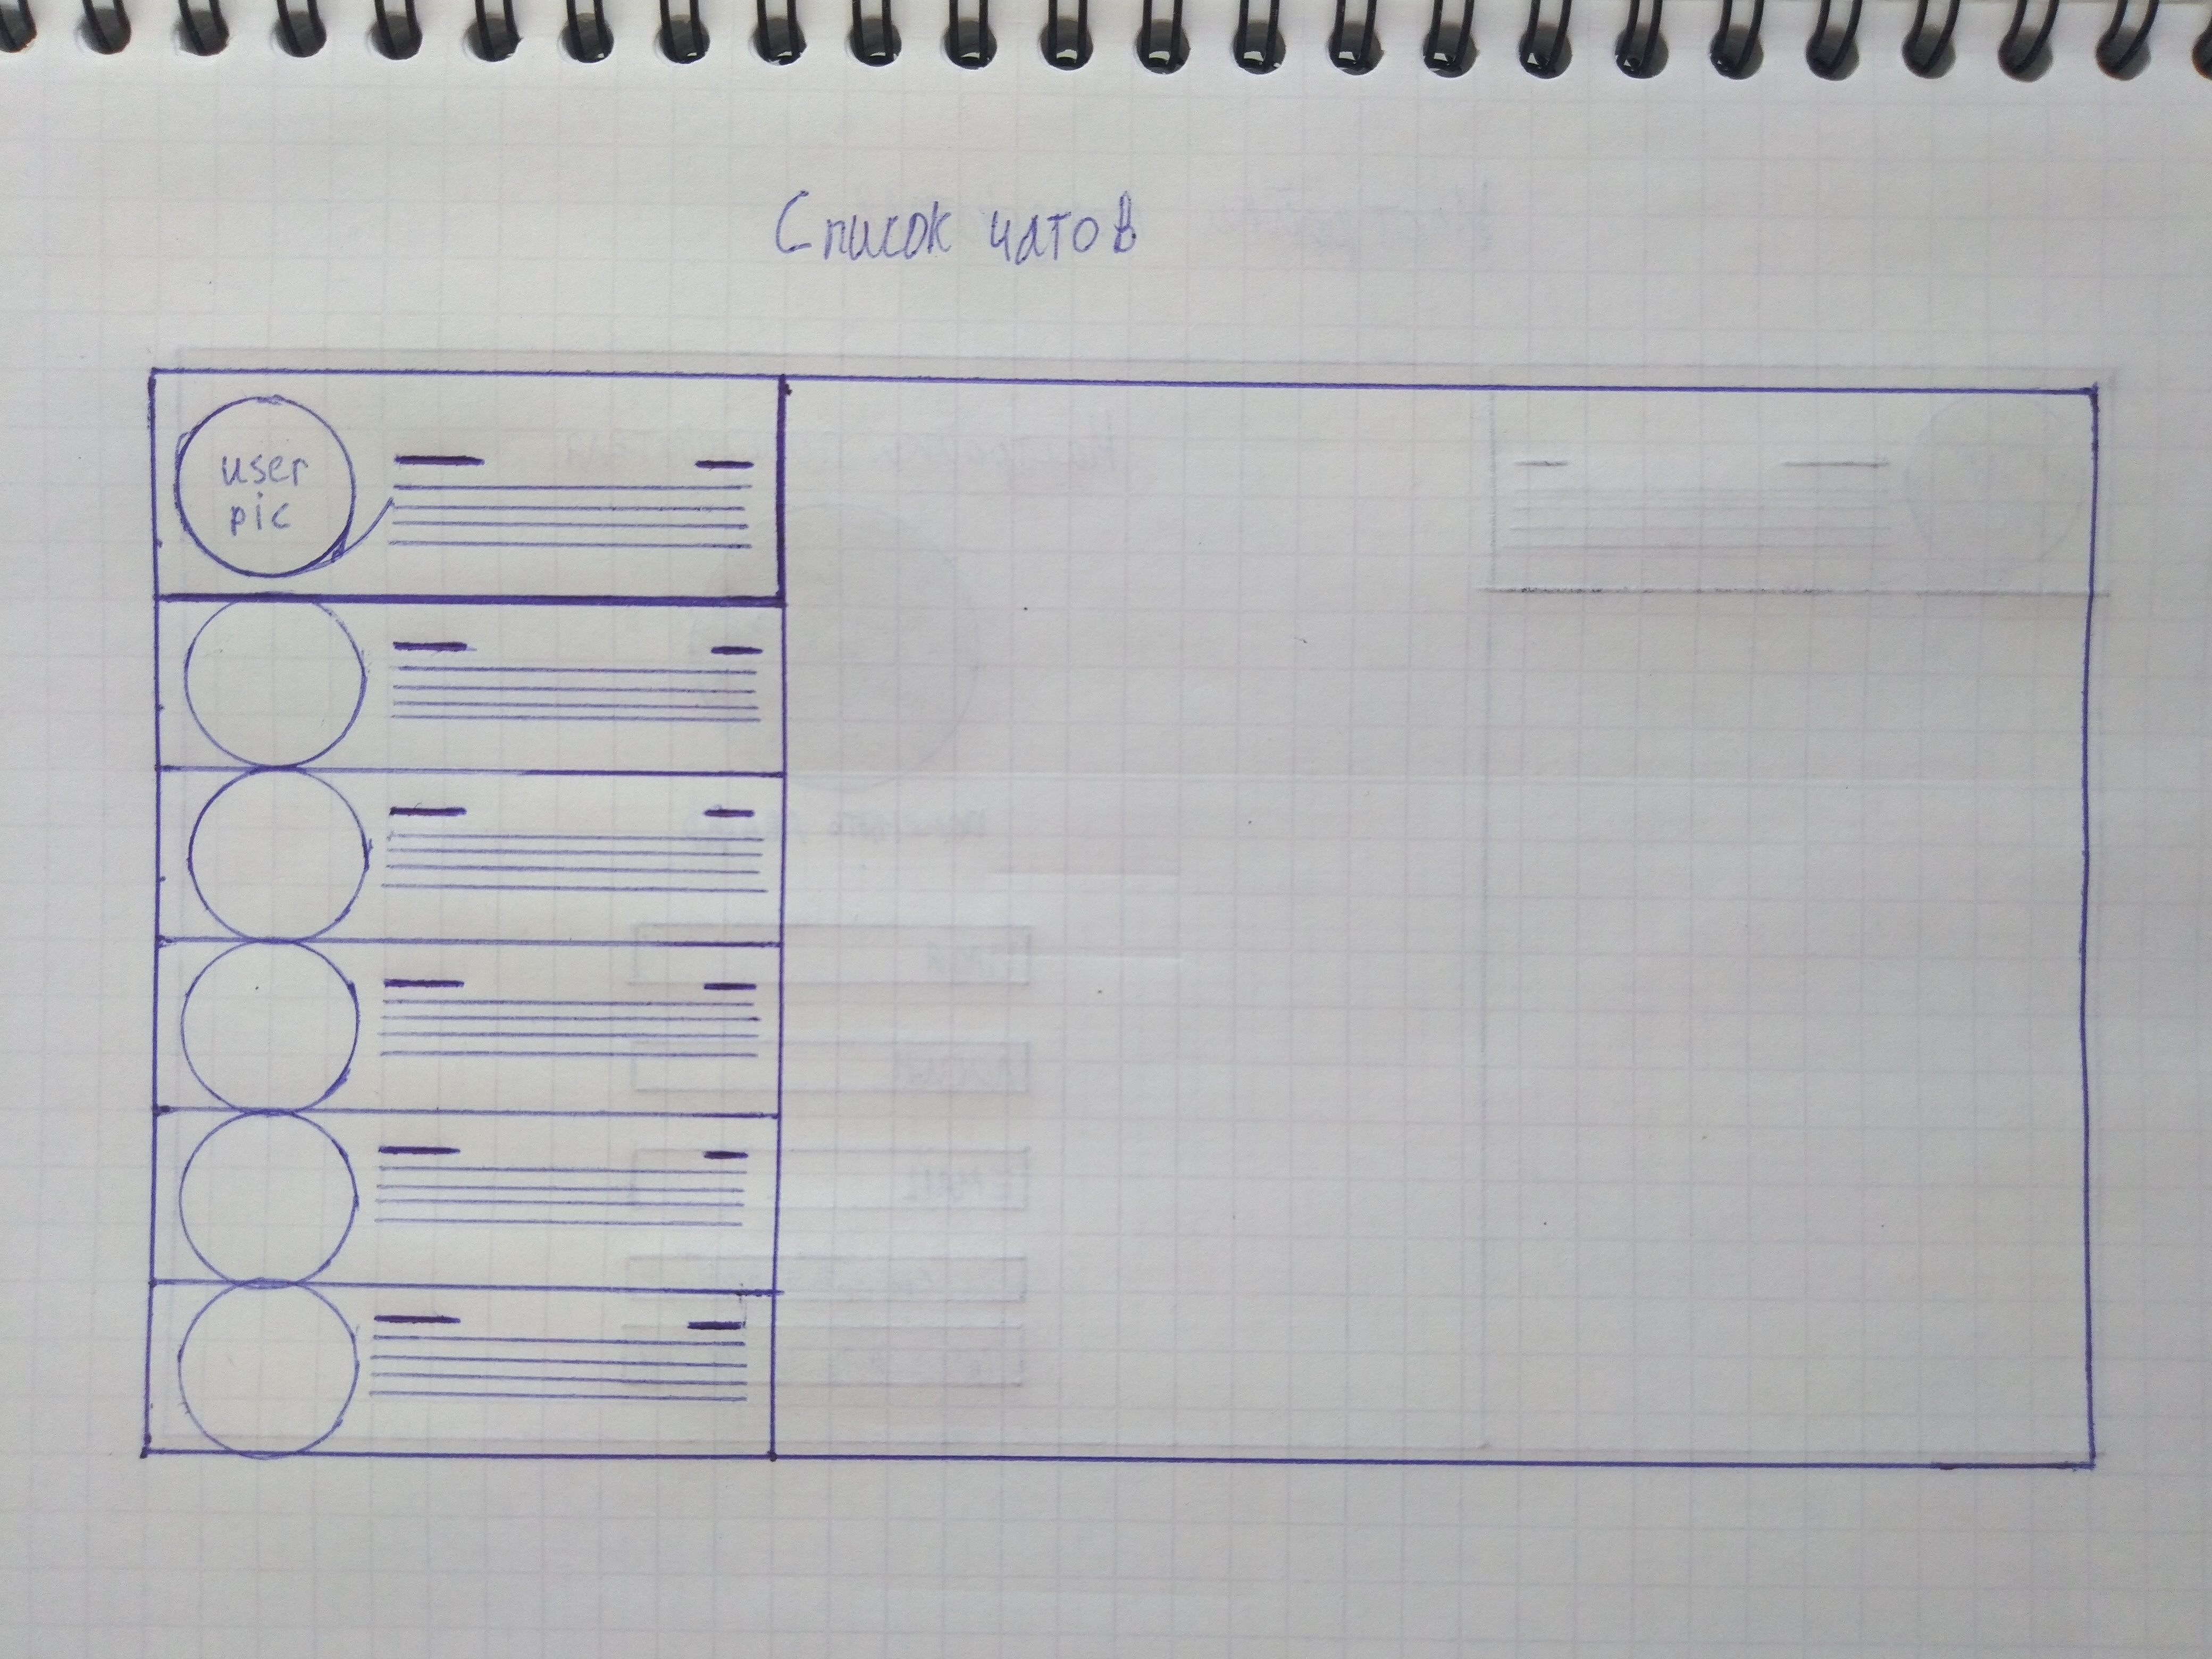 Список чатов
user
pic